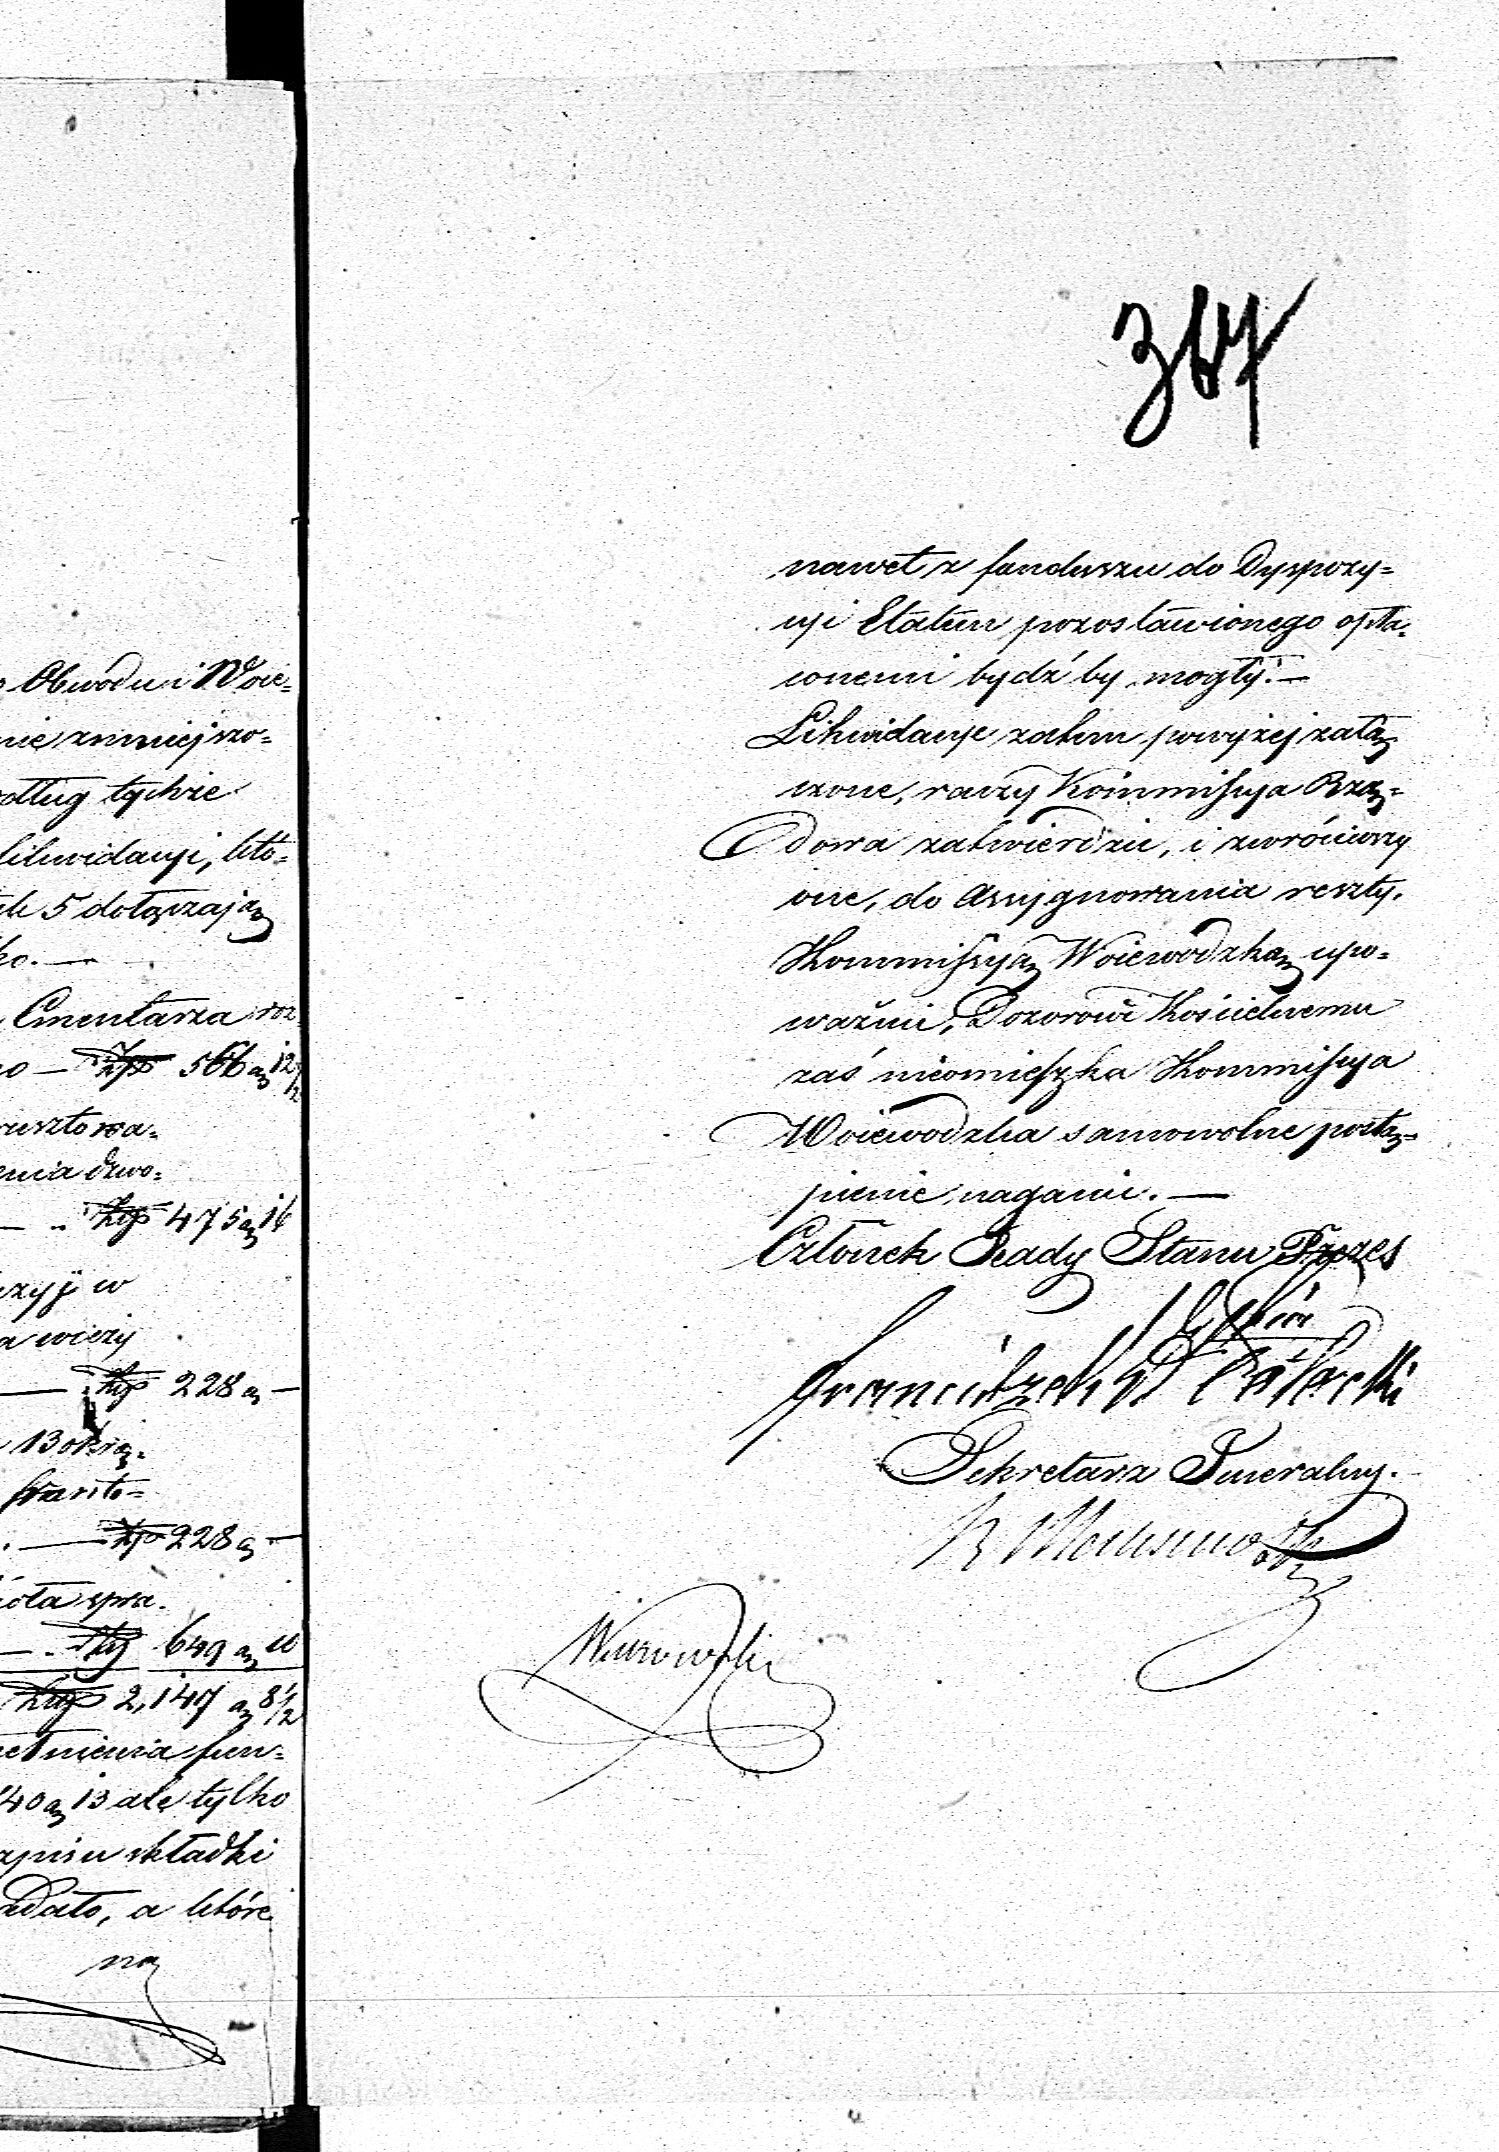 Obwodu i Woie=
nie zmniejszo=
według tychże
likwidacyi, któ=
5 dołączają
ko. —
Cmentarza roz=
no — Złp 566 g 12 1/2
rusztowa=
enia dzwo=
— Złp 475 g 16
w
a wieży
— Złp 228 g —
13 okrą=
— Złp 228 g —
spra=
— Złp 649 g 10
Złp 2,147 g 8 1/2
fun=
40 g 13 ale tylko
składki
a które
na
367
nawet z funduszu do Dyspozy=
cyi Etatem pozostawionego opła=
conemi bydź by mogły. —
Likwidacye zatem powyżej załą=
czone, raczy Kommissya Rzą=
dowa zatwierdzić, i zwróciwszy
one, do assygnowania reszty,
Kommissyą Woiewodzką upo=
ważnić, Dozorowi Kościelnemu
zaś nieomieszka Kommissya
Woiewodzka samowolne postą=
pienie naganić. —
Członek Rady Stanu Prezes
Sekretarz Jeneralny.